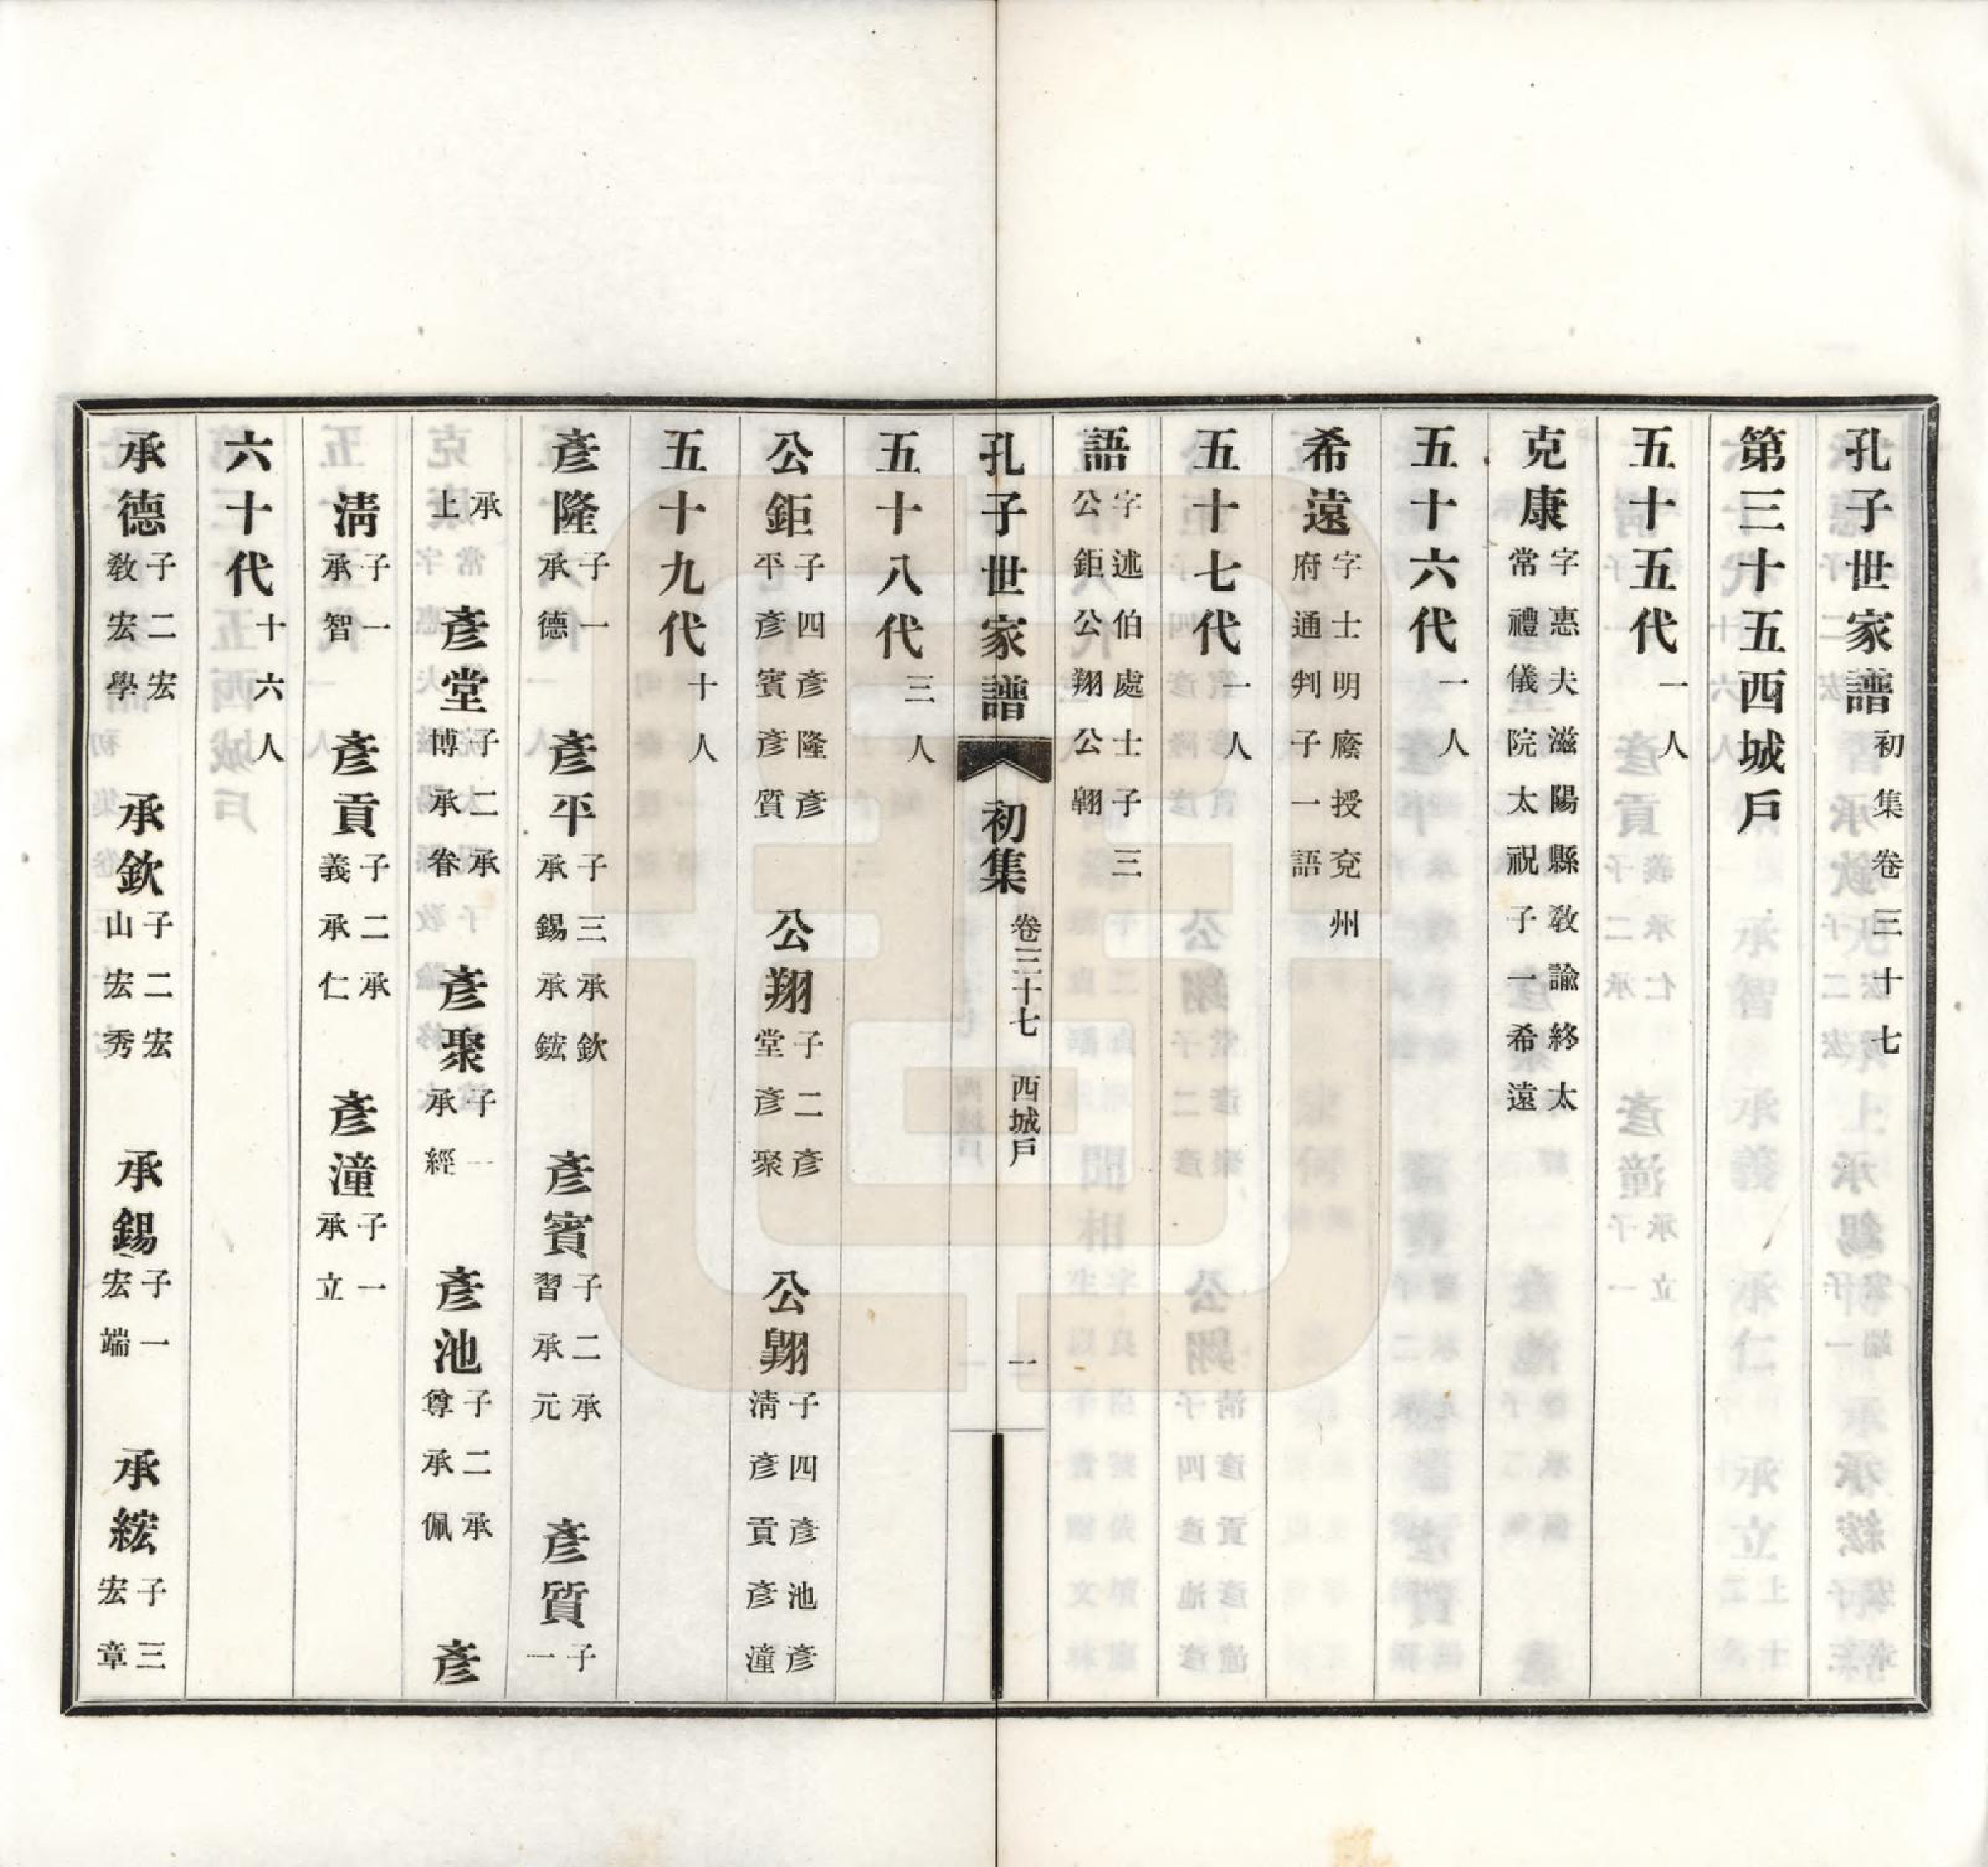 孔子世家譜初集卷三十七
第三十五西城戶
五十五代一人
克康字惠夫滋陽縣敎諭終太常禮儀院太祝子一希遠
五十六代一人
希遠字士明廕授兗州府通判子一語
五十七代一人
語字述伯處士子三公鉅公翔公翺
孔子世家譜 初集 卷三十七 西城戶 一
五十八代三人
公鉅子四彥隆彥平彥賓彥質 公翔子二彥堂彥聚 公翺子四彥池彥淸彥貢彥潼
五十九代十人
彥隆子一承德 彥平子三承欽承錫承鋐 彥賓子二承習承元 彥質子一
承上 彥堂子二承博承眷 彥聚子一承經 彥池子二承尊承佩 彥
淸子一承智 彥貢子二承義承仁 彥潼子一承立
六十代十六人
承德子二宏敎宏學 承欽子二宏山宏秀 承錫子一宏端 承綋子三宏章